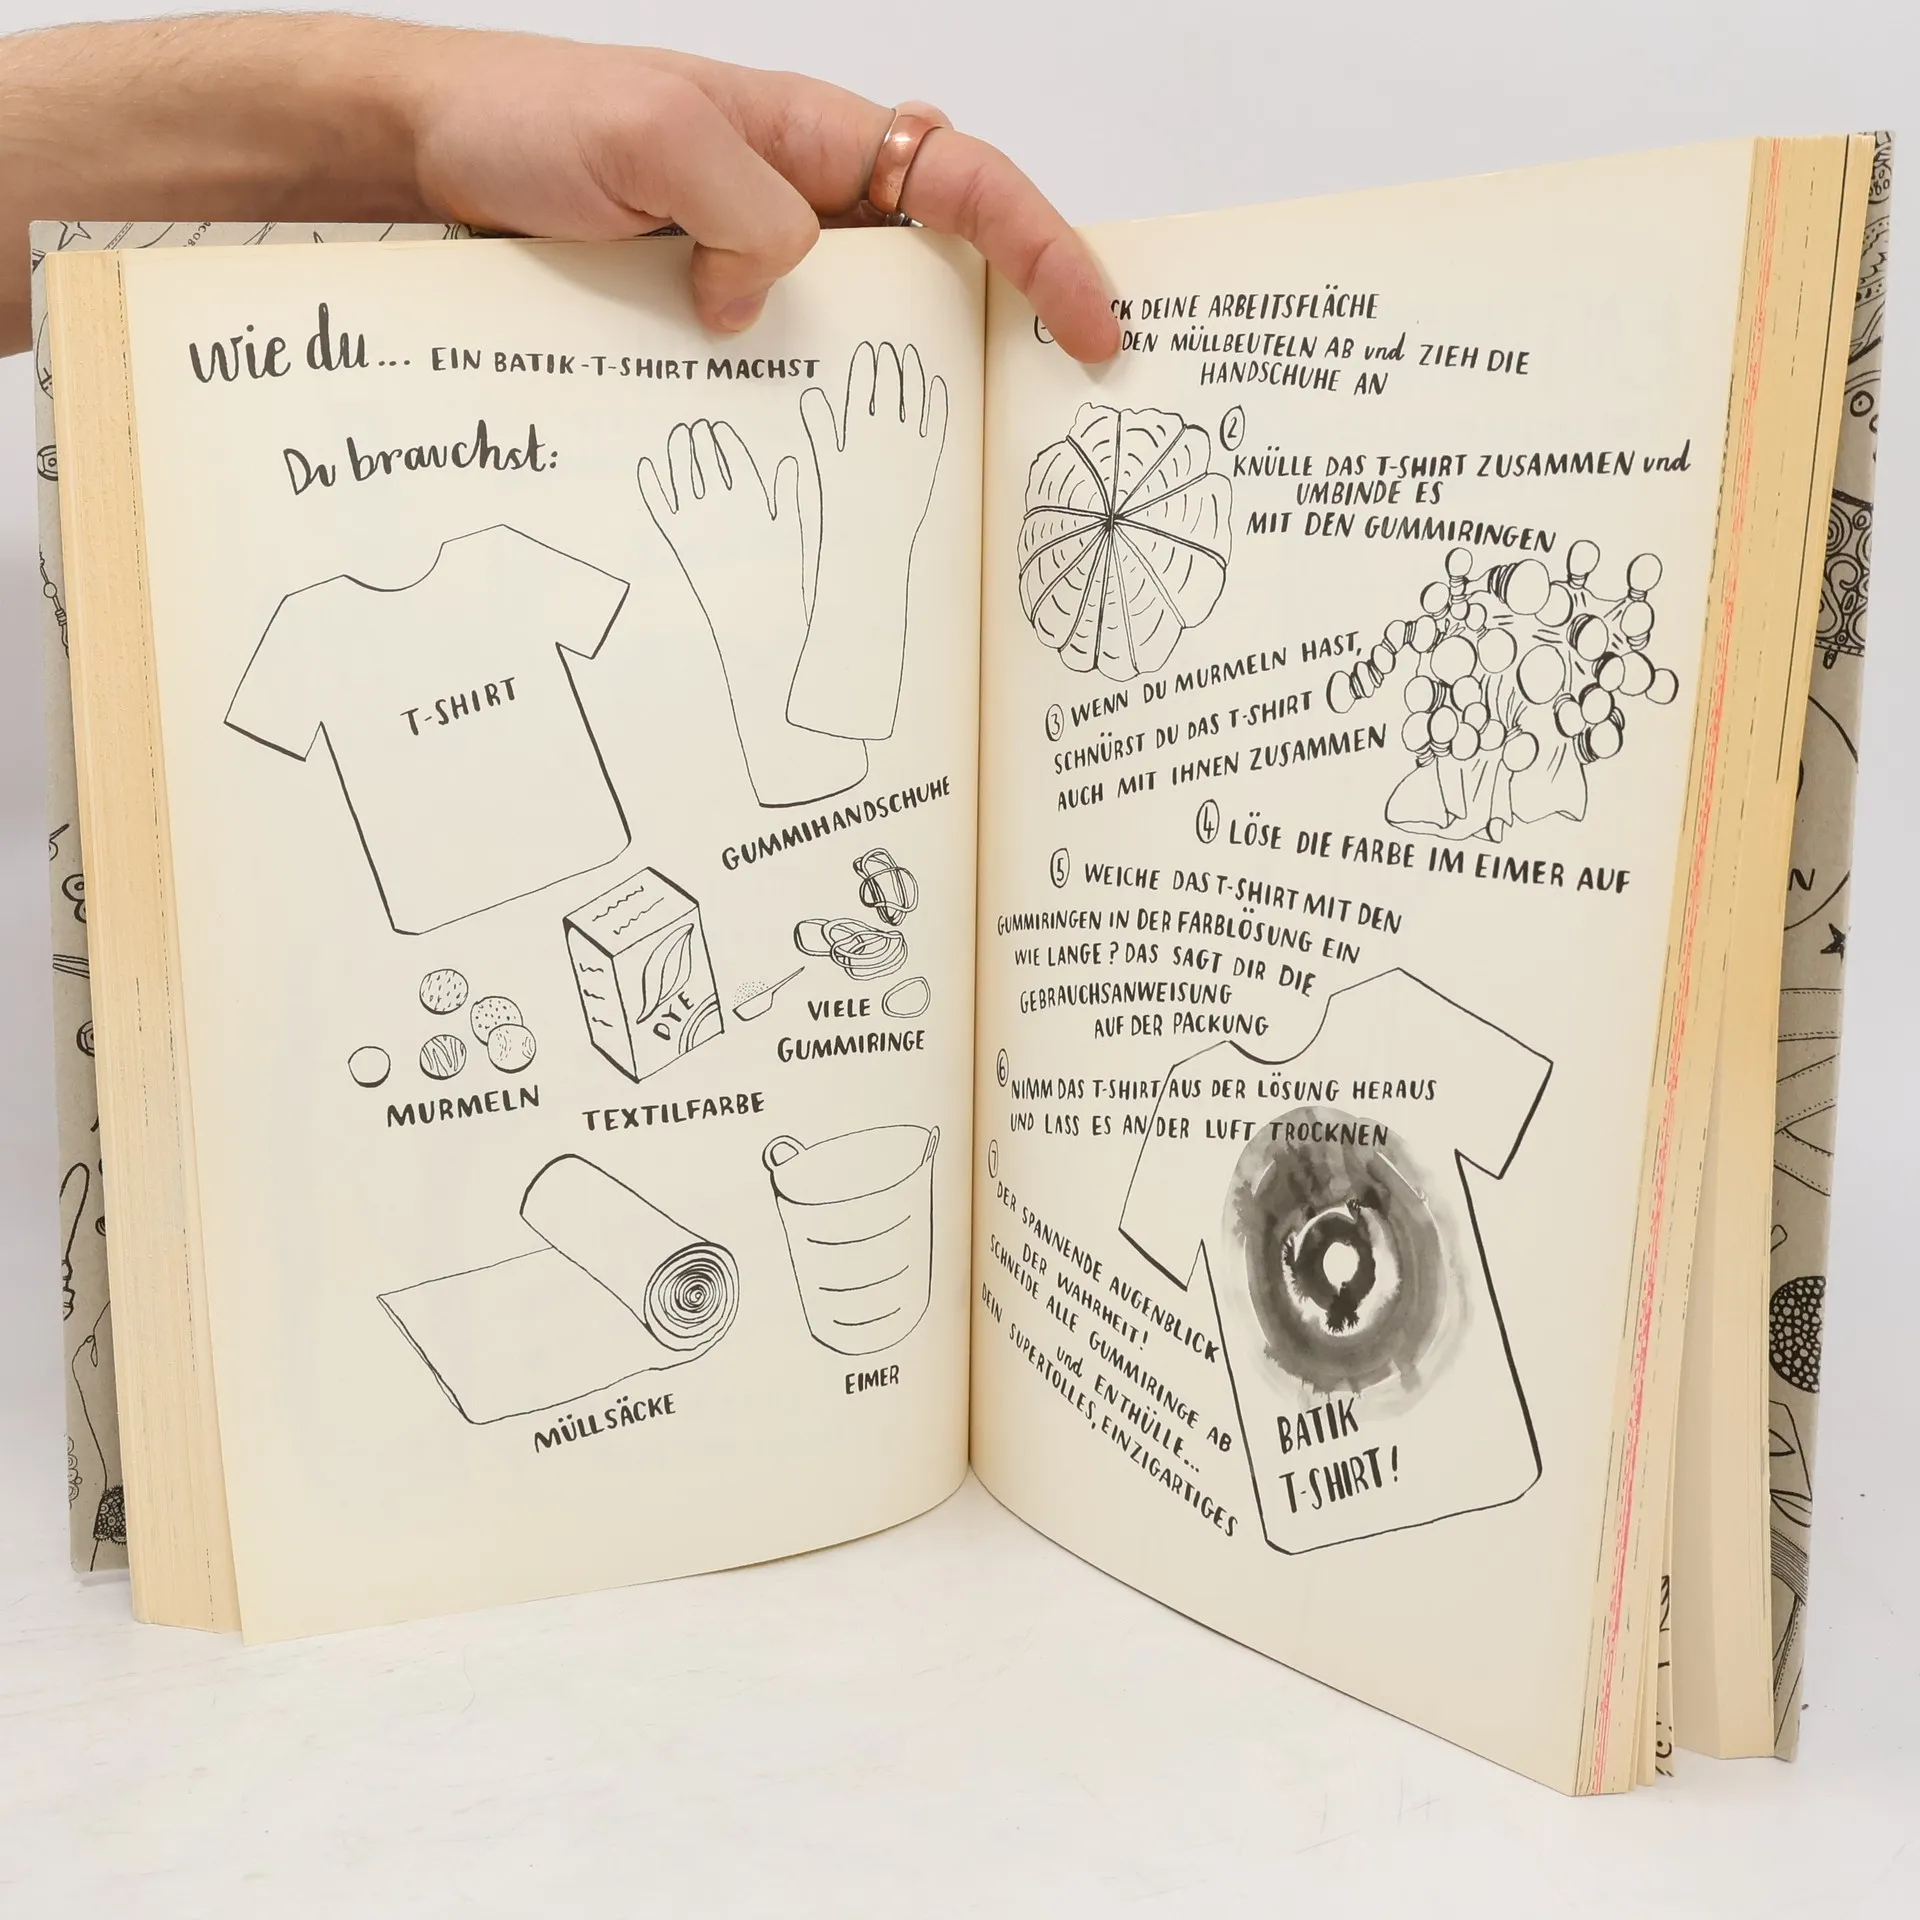 wie du... EIN BATIK-T-SHIRT MACHST
Du brauchst:
T-SHIRT
GUMMIHANDSCHUHE
DYE
VIELE
GUMMIRINGE
MURMELN
TEXTILFARBE
MÜLLSÄCKE
EIMER
DEINE ARBEITSFLÄCHE
DEN MÜLLBEUTELN AB und ZIEH DIE
HANDSCHUHE AN
2
KNÜLLE DAS T-SHIRT ZUSAMMEN und
UMBINDE ES
MIT DEN GUMMIRINGEN
3 WENN DU MURMELN HAST,
SCHNÜRST DU DAS T-SHIRT
AUCH MIT IHNEN ZUSAMMEN
4 LÖSE DIE FARBE IM EIMER AUF
5 WEICHE DAS T-SHIRT MIT DEN
GUMMIRINGEN IN DER FARBLÖSUNG EIN
WIE LANGE? DAS SAGT DIR DIE
GEBRAUCHSANWEISUNG
AUF DER PACKUNG
6 NIMM DAS T-SHIRT AUS DER LÖSUNG HERAUS
UND LASS ES AN DER LUFT TROCKNEN
7
DER SPANNENDE AUGENBLICK
DER WAHRHEIT!
SCHNEIDE ALLE GUMMIRINGE AB
und ENTHÜLLE...
DEIN SUPERTOLLES, EINZIGARTIGES
BATIK
T-SHIRT!